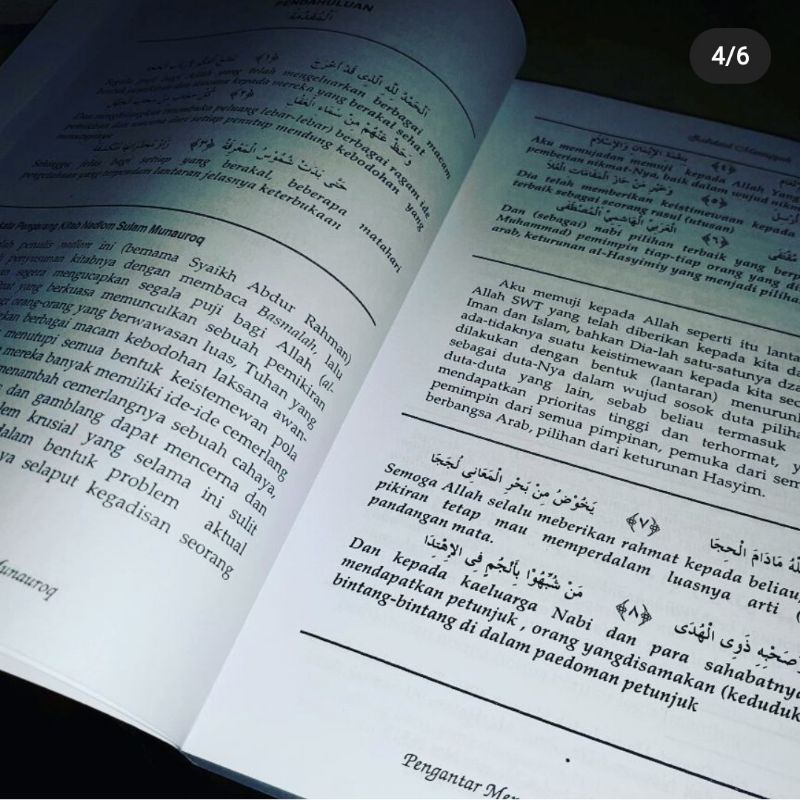 4/6
PENDAHULUAN
اَلْمُقَدِّمَةُ
اَلْحَمْدُ للهِ الَّذِي قَدْ أَخْرَجَا ﴿١﴾
Segala puji bagi Allah yang telah mengeluarkan berbagai macam
kepada mereka yang berakal sehat
وَحَطَّ عَنْهُمْ مِنْ سَمَاءِ الْعَقْلِ ﴿٢﴾
Dan membuka peluang lebar-lebar) berbagai ragam ide
pemikiran dari setiap penutup mendung kebodohan yang
حَتَّى بَدَتْ شُمُوْسُ الْمَعْرِفَةْ ﴿٣﴾
Sehingga jelas bagi setiap yang berakal, beberapa matahari
pengetahuan yang lantaran jelasnya keterbukaan
Kata Pengarang Kitab Nadlom Sulam Munauroq
penulis nadlom ini (bernama Syaikh Abdur Rahman)
penyusunan kitabnya dengan membaca Basmalah, lalu
segera mengucapkan segala puji bagi Allah (al-
yang berkuasa memunculkan sebuah pemikiran
orang-orang yang berwawasan luas, Tuhan yang
berbagai macam kebodohan laksana awan-
menutupi semua bentuk keistemewan pola
mereka banyak memiliki ide-ide cemerlang
menambah cemerlangnya sebuah cahaya,
dan gamblang dapat mencerna dan
krusial yang selama ini sulit
dalam bentuk problem aktual
selaput kegadisan seorang
Munauroq
نِعْمَةِ الْإِيْمَانِ وَالْإِسْلَامِ ﴿٤﴾
Aku memujadan memuji kepada Allah Yang
pemberian nikmat-Nya, baik dalam wujud nikm
وَخَيْرِ مَنْ حَازَ الْمَقَامَاتِ الْعُلَا ﴿٥﴾
Dia telah memberikan keistimewaan kepada
terbaik sebagai seorang rasul (utusan)
الْعَرَبِيِّ الْهَاشِمِيِّ الْمُصْطَفَى ﴿٦﴾
Dan (sebagai) nabi pilihan terbaik yang berp
Muhammad) pemimpin tiap-tiap orang yang di
arab, keturunan al-Hasyimiy yang menjadi piliha
Aku memuji kepada Allah seperti itu lanta
Allah SWT yang telah diberikan kepada kita da
Iman dan Islam, bahkan Dia-lah satu-satunya dza
ada-tidaknya suatu keistimewaan kepada kita sec
dilakukan dengan bentuk (lantaran) menurunl
sebagai duta-Nya dalam wujud sosok duta piliha
duta-duta yang lain, sebab beliau termasuk
mendapatkan prioritas tinggi dan terhormat, y
pemimpin dari semua pimpinan, pemuka dari sem
berbangsa Arab, pilihan dari keturunan Hasyim.
اللهُ مَادَامَ الْحِجَا ﴿٧﴾ يَخُوْضُ مِنْ بَحْرِ الْمَعَانِي لُجَجَا
Semoga Allah selalu meberikan rahmat kepada beliau,
pikiran tetap mau memperdalam luasnya arti (
pandangan mata.
وَصَحْبِهِ ذَوِى الْهُدَى ﴿٨﴾ مَنْ شُبِّهُوْا بِأَنْجُمٍ فِى الإِهْتِدَا
Dan kepada kaeluarga Nabi dan para sahabatnya
mendapatkan petunjuk , orang yangdisamakan (keduduk
bintang-bintang di dalam paedoman petunjuk
Pengantar Me